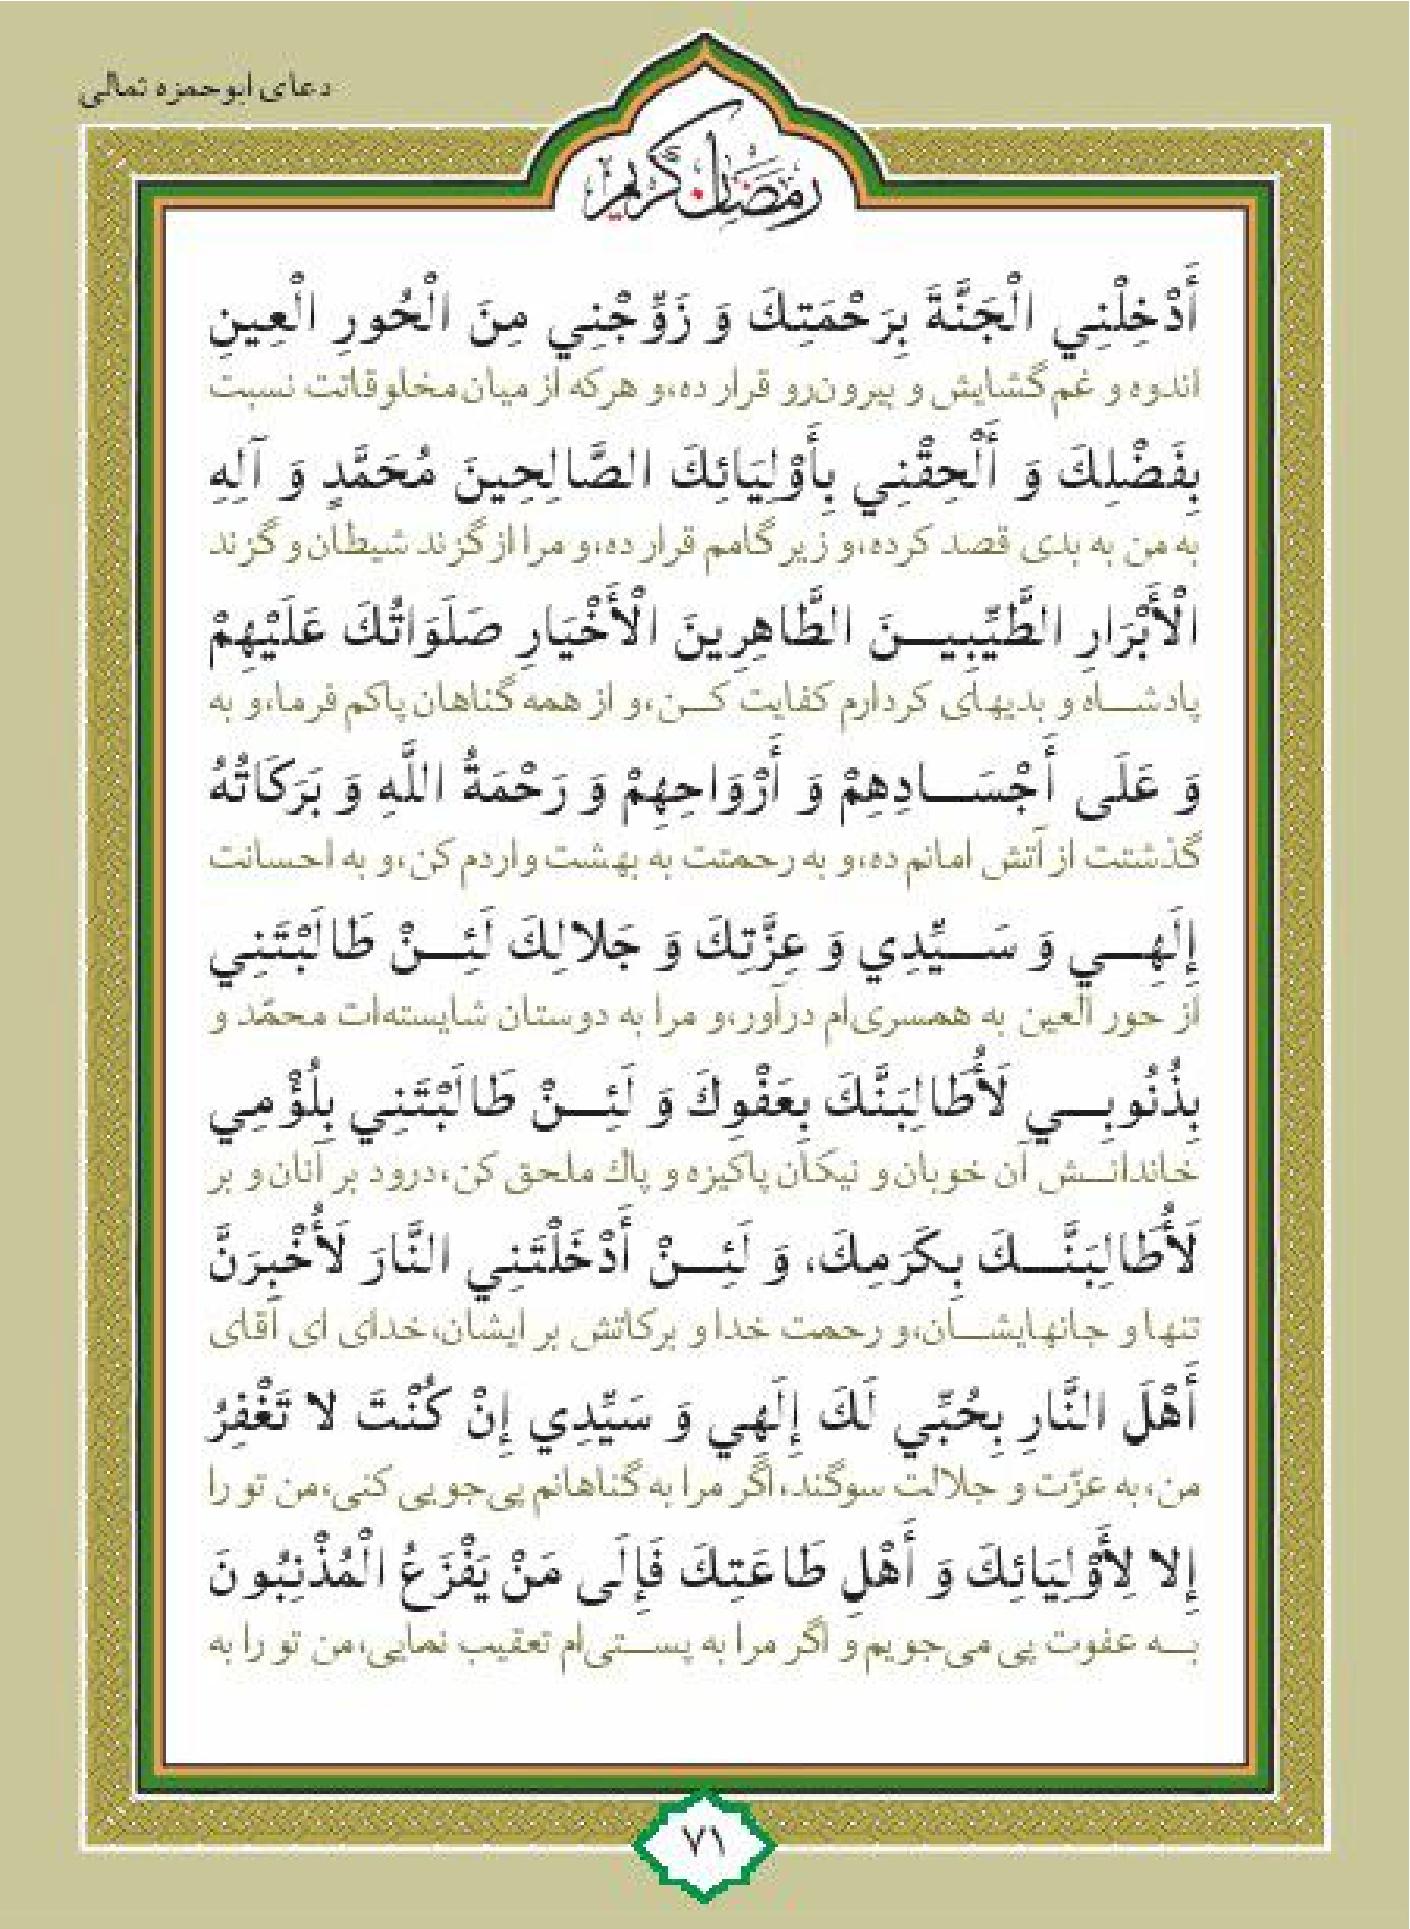 دعای ابوحمزه ثمالی
رمضان کریم
أَدْخِلْنِي الْجَنَّةَ بِرَحْمَتِكَ وَ زَوِّجْنِي مِنَ الْحُورِ الْعِينِ
اندوه و غم گشایش و بیرون‌رو قرار ده،و هرکه از میان مخلوقاتت نسبت
بِفَضْلِكَ وَ أَلْحِقْنِي بِأَوْلِيَائِكَ الصَّالِحِينَ مُحَمَّدٍ وَ آلِهِ
به من به بدی قصد کرده،و زیر گامم قرار ده،و مرا از گزند شیطان و گزند
الْأَبْرَارِ الطَّيِّبِيـنَ الطَّاهِرِينَ الْأَخْيَارِ صَلَوَاتُكَ عَلَيْهِمْ
پادشـاه و بدیهای کردارم کفایت کـن،و از همه گناهان پاکم فرما،و به
وَ عَلَى أَجْسَـادِهِمْ وَ أَرْوَاحِهِمْ وَ رَحْمَةُ اللَّهِ وَ بَرَكَاتُهُ
گذشتت از آتش امانم ده،و به رحمتت به بهشت واردم کن،و به احسانت
إِلَهِـي وَ سَـيِّدِي وَ عِزَّتِكَ وَ جَلالِكَ لَئِـنْ طَالَبْتَنِي
از حور العین به همسری‌ام درآور،و مرا به دوستان شایسته‌ات محمّد و
بِذُنُوبِـي لَأُطَالِبَنَّكَ بِعَفْوِكَ وَ لَئِـنْ طَالَبْتَنِي بِلُؤْمِي
خاندانـش آن خوبان و نیکان پاکیزه و پاك ملحق کن،درود بر آنان و بر
لَأُطَالِبَنَّـكَ بِكَرَمِكَ، وَ لَئِـنْ أَدْخَلْتَنِي النَّارَ لَأُخْبِرَنَّ
تنها و جانهایشـان،و رحمت خدا و برکاتش بر ایشان،خدای ای آقای
أَهْلَ النَّارِ بِحُبِّي لَكَ إِلَهِي وَ سَيِّدِي إِنْ كُنْتَ لا تَغْفِرُ
من،به عزّت و جلالت سوگند،اگر مرا به گناهانم پی‌جویی کنی،من تو را
إِلا لِأَوْلِيَائِكَ وَ أَهْلِ طَاعَتِكَ فَإِلَى مَنْ يَفْزَعُ الْمُذْنِبُونَ
بـه عفوت پی می‌جویم و اگر مرا به پسـتی‌ام تعقیب نمایی،من تو را به
۷۱